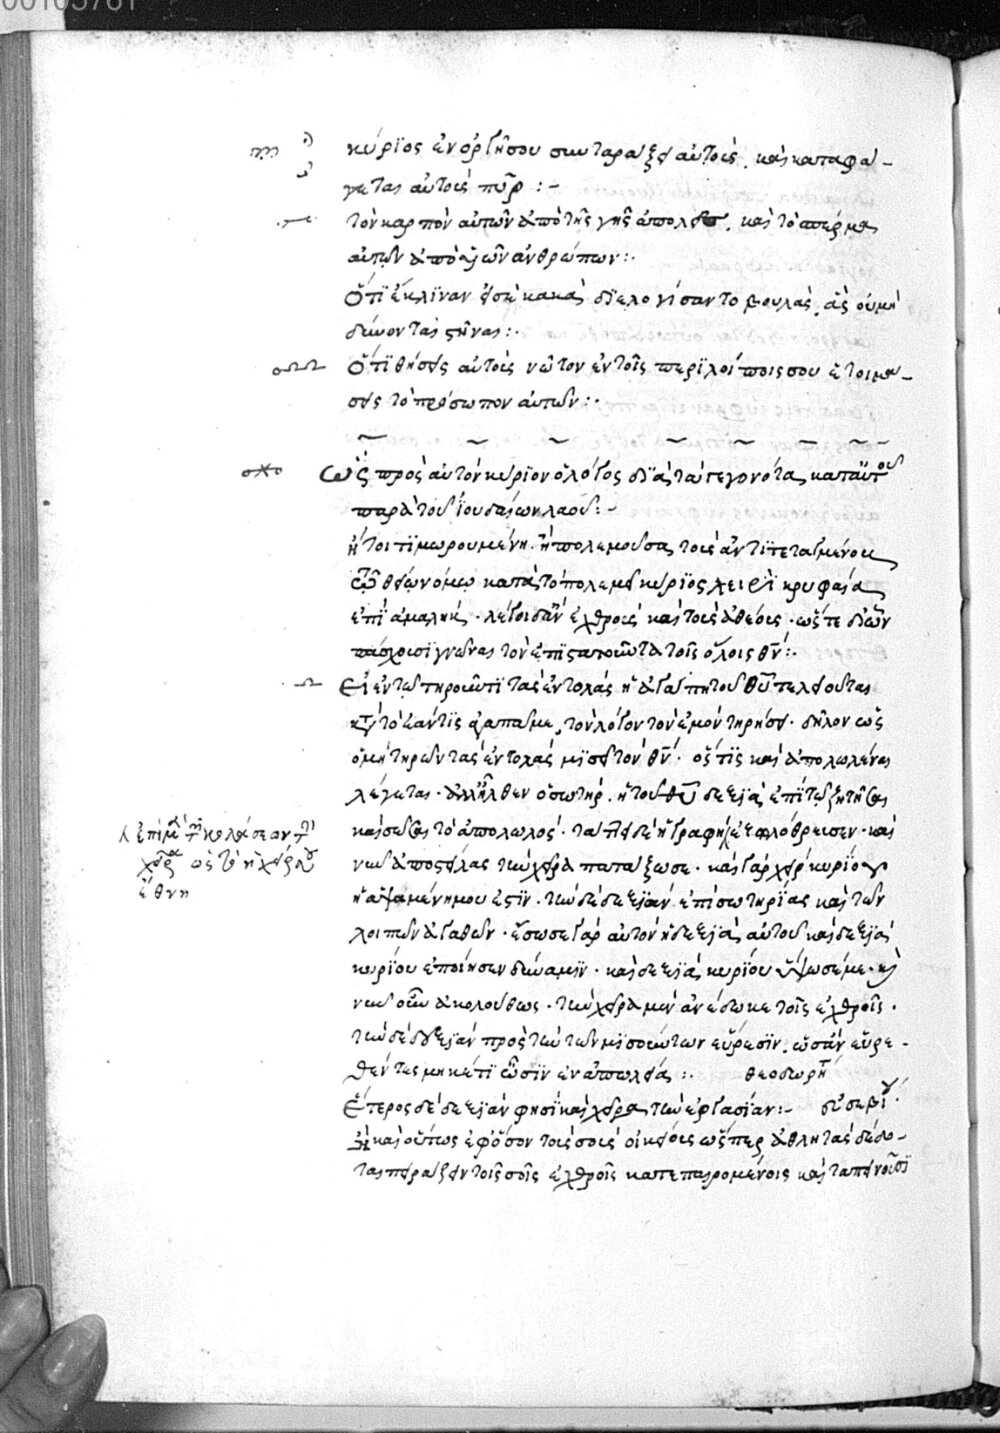 κύριος ἐν ὀργῆ σου συνταράξει αὐτοὺς, καὶ καταφά-
γεται αὐτοὺς πῦρ :-
τὸν καρπὸν αὐτῶν ἀπὸ τῆς γῆς ἀπολεῖς, καὶ τὸ σπέρμα
αὐτῶν ἀπὸ υἱῶν ἀνθρώπων :·
Ὅτι ἔκλιναν εἰς σὲ κακὰ, διελογίσαντο βουλὰς, ἃς οὐ μὴ
δύνονται στῆναι :·
Ὅτι θήσεις αὐτοὺς νῶτον ἐν τοῖς περιλοίποις σου ἑτοιμά-
σεις τὸ πρόσωπον αὐτῶν :·
Ὡς πρὸς αὐτὸν κύριον ὁ λόγος διὰ τὰ γεγονότα κατ' αὐτοῦ
παρὰ τοῦ ἰουδαίων λαοῦ :-
ἤτοι τιμωρουμένη. ἢ πολεμοῦσα τοὺς ἀντιτεταγμένους
τῶ θείω νόμω κατὰ τὸ πολεμεῖ κύριος χειρὶ κρυφαία
ἐπὶ ἀμαλὴκ · λέγοι δ' ἂν ἐχθροὺς καὶ τοὺς ἀθέους · ὥστε δι' ὧν
πάσχουσι γνῶναι τὸν ἐπιστατοῦντα τοῖς ὅλοις θν :·
Εἰ ἐν τῶ τηροῦντι τὰς ἐντολὰς ἡ ἀγάπη τοῦ θυ τελειοῦται
κατὰ τὸ ἐάν τις ἀγαπᾶ με, τὸν λόγον τὸν ἐμὸν τηρήσει · δῆλον ὡς
ὁ μὴ τηρῶν τὰς ἐντολὰς μισεῖ τὸν θν · ὅστις καὶ ἀπολωλέναι
λέγεται · ἀλλ' ἦλθεν ὁ σωτὴρ, ἡ τοῦ θυ δεξιὰ ἐπὶ τῶ ζητῆσαι
καὶ σῶσαι τὸ ἀπολωλός ·
ἔθνη
νῦν ἀποστείλας τὴν χεῖρα πατάξω σε · καὶ γὰρ χεὶρ κυρίου
ἡ ἁψαμένη μου ἐστὶν · τὴν δὲ δεξιὰν ἐπὶ σωτηρίας καὶ τῶν
λοιπῶν ἀγαθῶν · ἔσωσε γὰρ αὐτὸν ἡ δεξιὰ αὐτοῦ καὶ δεξιὰ
κυρίου ἐποίησεν δύναμιν · καὶ δεξιὰ κυρίου ὕψωσέ με · καὶ
νῦν οὖν ἀκολούθως · τὴν χεῖρα μὲν ἀνέδωκε τοῖς ἐχθροῖς ·
τὴν δὲ δεξιὰν πρὸς τὴν τῶν μισούντων εὕρεσιν, ὡς ἂν εὑρε-
θέντες μηκέτι ὦσιν ἐν ἀπωλεία :· θεοδωρήτ
Ἕτερος δὲ δεξιὰν φησὶ καὶ χεῖρα τὴν ἐργασίαν :- εὐσεβίου
Ἢ καὶ οὕτως ἐφ' ὅσον τοὺς σοὺς οἰκείους ὥσπερ ἀθλητὰς